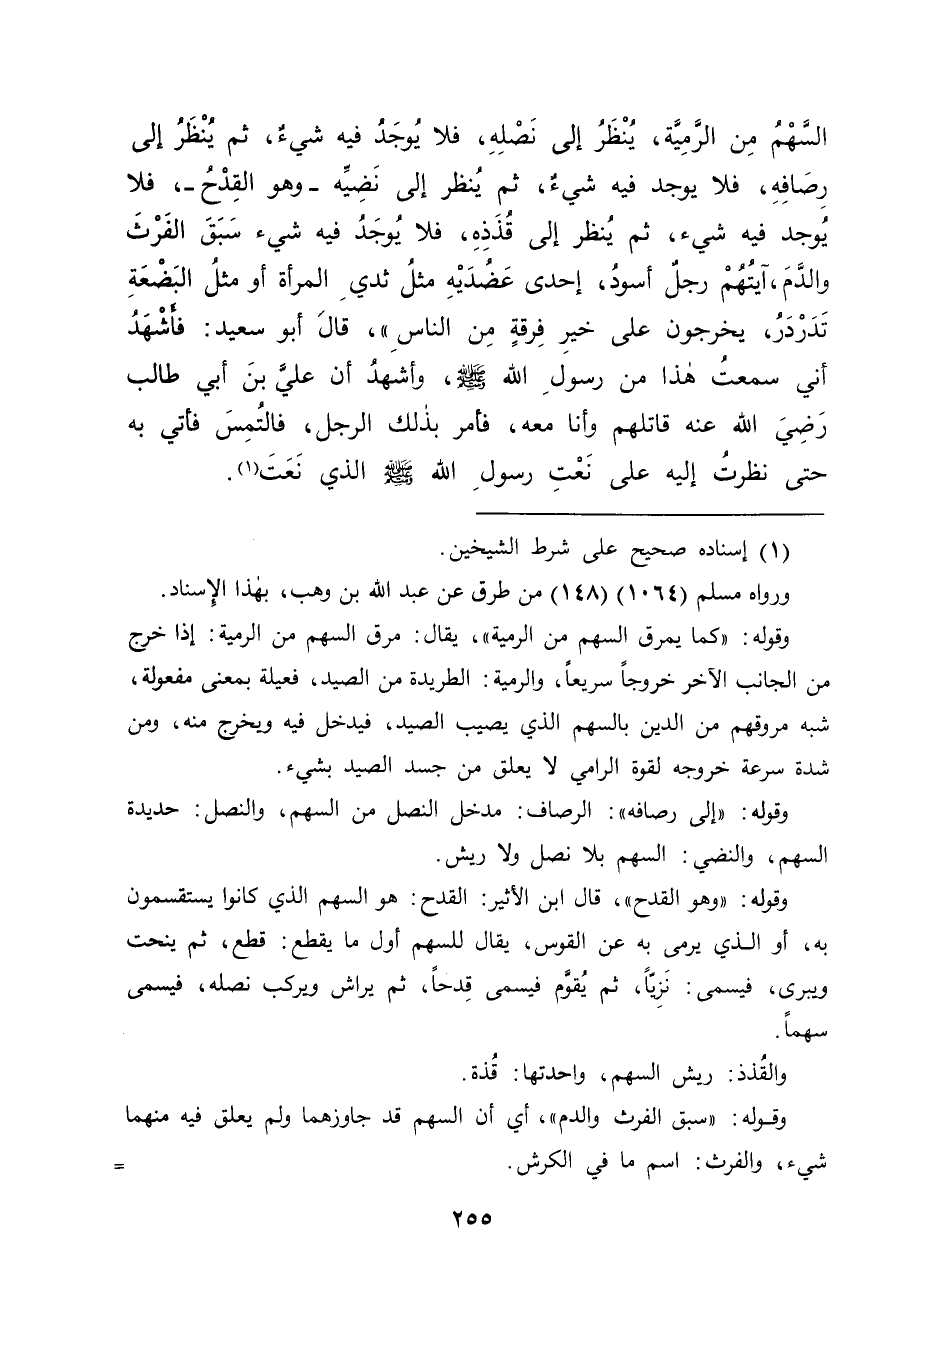 السَّهْمُ مِن الرَّمِيَّة، يُنْظَرُ إلى نَصْلِهِ، فلا يُوجَدُ فيه شيءٌ، ثم يُنْظَرُ إلى
رِصَافِهِ، فلا يوجد فيه شيءٌ، ثم يُنظر إلى نَضِيِّه ـ وهو القِدْحُ ـ، فلا
يُوجد فيه شيء، ثم يُنظر إلى قُذَذِهِ، فلا يُوجَدُ فيه شيء سَبَقَ الفَرْثَ
والدَّمَ، آيتُهُمْ رجلٌ أسودُ، إحدى عَضُدَيْهِ مثلُ ثدي المرأة أو مثلُ البَضْعَةِ
تَدَرْدَرُ، يخرجون على خيرِ فِرقةٍ مِن الناسِ»، قالَ أبو سعيد: فأَشْهَدُ
أني سمعتُ هٰذا من رسولِ الله ﷺ، وأشهدُ أن عليَّ بنَ أبي طالب
رَضِيَ الله عنه قاتلهم وأنا معه، فأمر بذٰلك الرجل، فالتُمِسَ فأتي به
حتى نظرتُ إليه على نَعْتِ رسولِ الله ﷺ الذي نَعَتَ(١).
(١) إسناده صحيح على شرط الشيخين.
ورواه مسلم (١٠٦٤) (١٤٨) من طرق عن عبد الله بن وهب، بهٰذا الإسناد.
وقوله: «كما يمرق السهم من الرمية»، يقال: مرق السهم من الرمية: إذا خرج
من الجانب الآخر خروجاً سريعاً، والرمية: الطريدة من الصيد، فعيلة بمعنى مفعولة،
شبه مروقهم من الدين بالسهم الذي يصيب الصيد، فيدخل فيه ويخرج منه، ومن
شدة سرعة خروجه لقوة الرامي لا يعلق من جسد الصيد بشيء.
وقوله: «إلى رصافه»: الرصاف: مدخل النصل من السهم، والنصل: حديدة
السهم، والنضي: السهم بلا نصل ولا ريش.
وقوله: «وهو القدح»، قال ابن الأثير: القدح: هو السهم الذي كانوا يستقسمون
به، أو الـذي يرمى به عن القوس، يقال للسهم أول ما يقطع: قطع، ثم ينحت
ويبرى، فيسمى: نَزِيّاً، ثم يُقوَّم فيسمى قِدحاً، ثم يراش ويركب نصله، فيسمى
سهماً.
والقُذذ: ريش السهم، واحدتها: قُذة.
وقـوله: «سبق الفرث والدم»، أي أن السهم قد جاوزهما ولم يعلق فيه منهما
شيء، والفرث: اسم ما في الكرش. =
٢٥٥